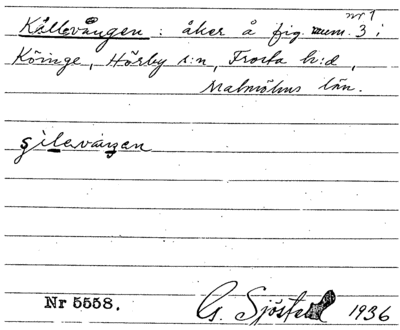 nr 1
Källevången : åker å fig. num. 3 i
Köinge, Hörby s:n, Frosta h:d,
Malmöhus län.
Nr 5558.
G. Sjöstedt 1936